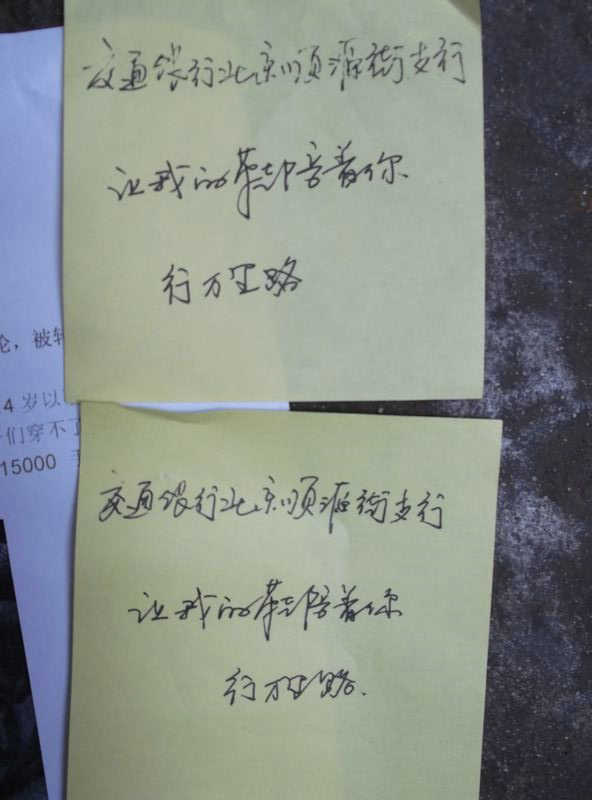 交通银行北京顺源街支行
让我的鞋陪着你
行万里路
，被
4 岁以
们穿不了
15000
交通银行北京顺源街支行
让我的鞋陪着你
行万里路.